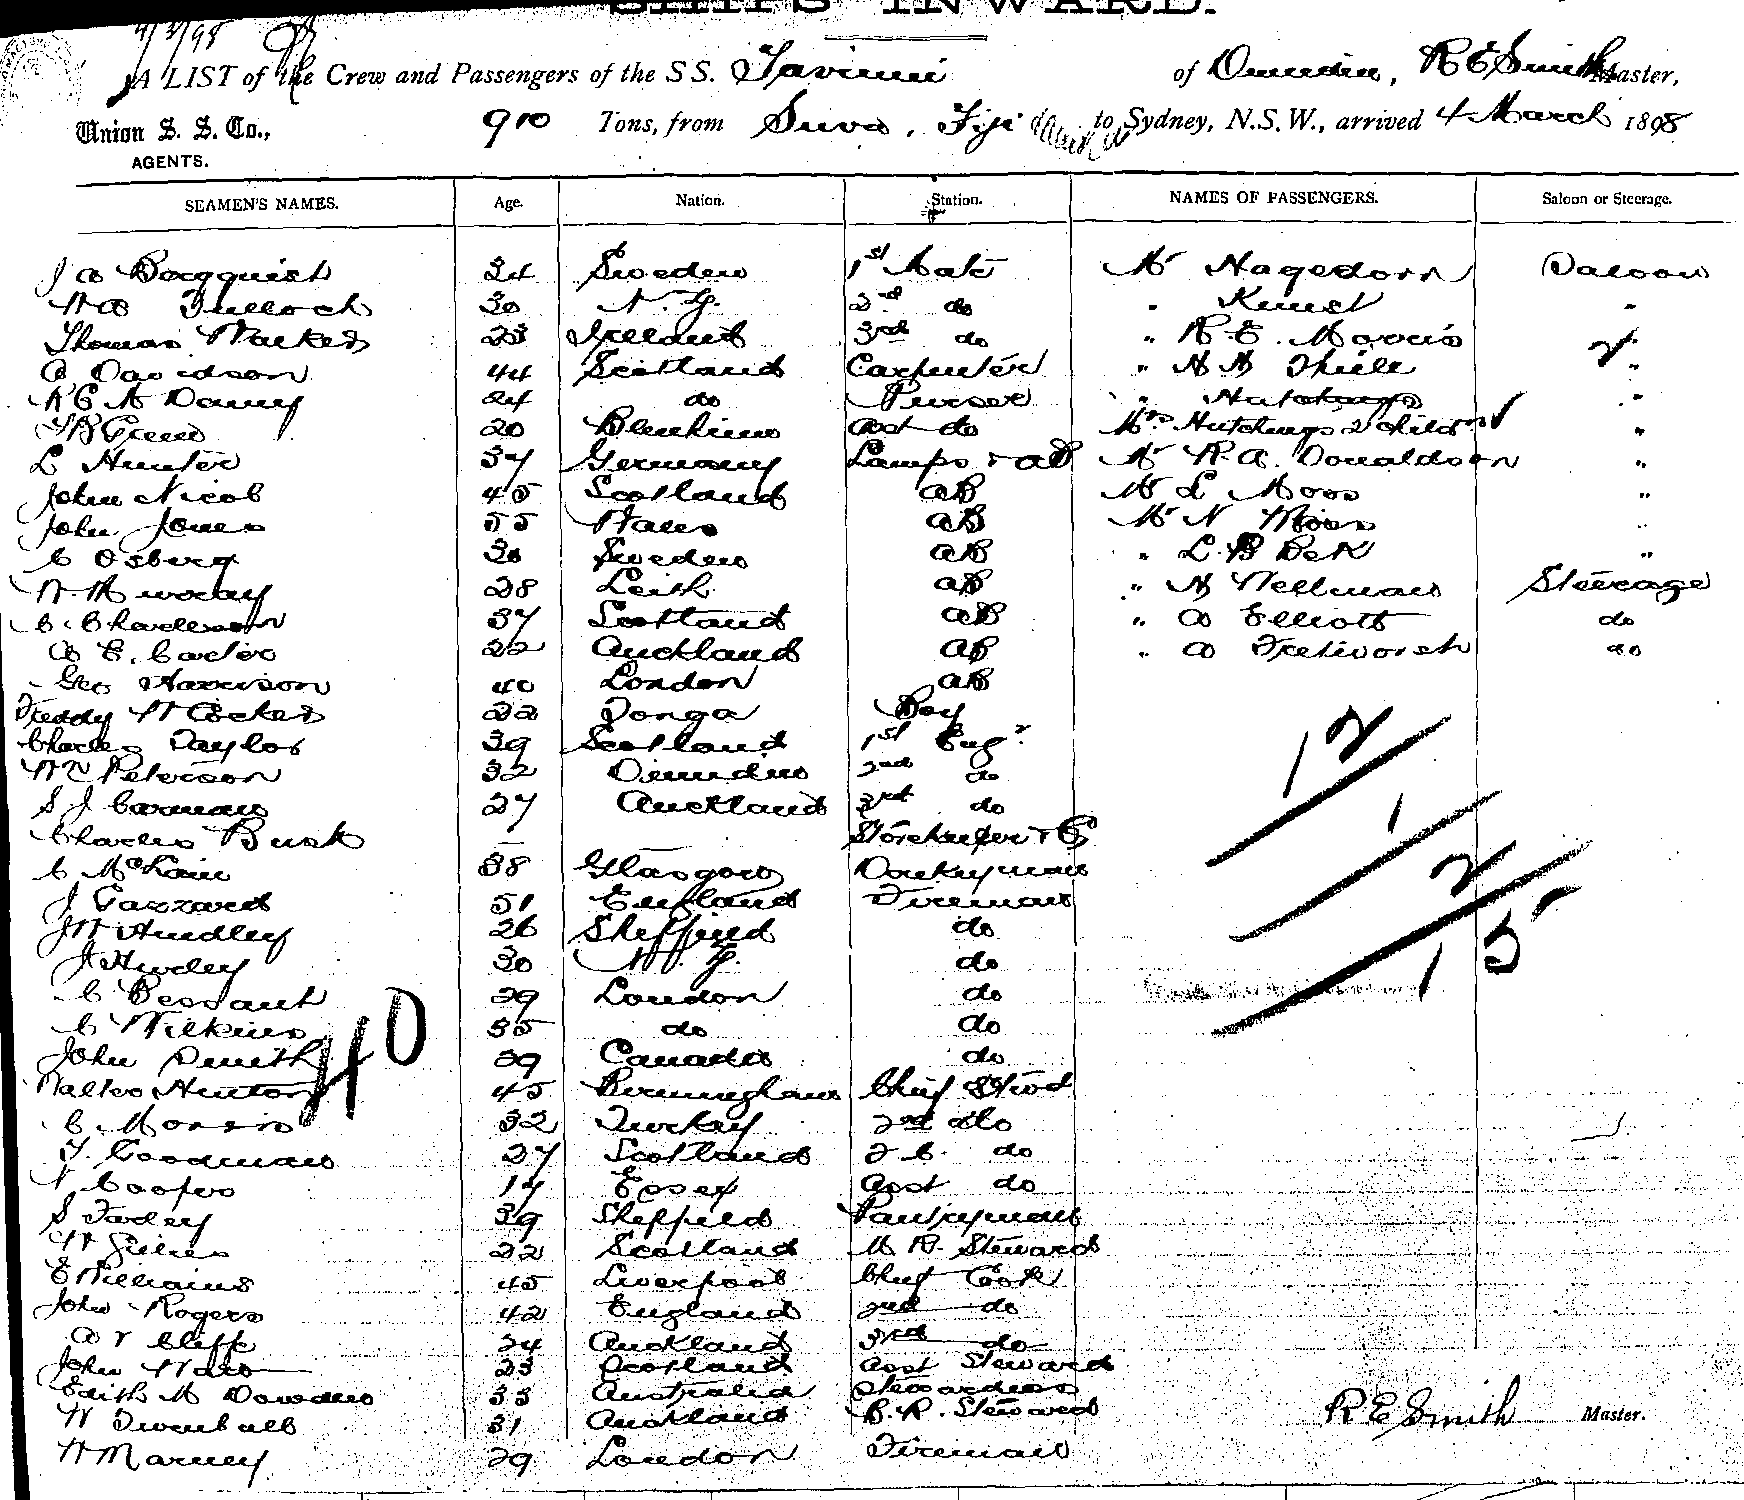 SHIPS INWARD.
4/3/98
A LIST of the Crew and Passengers of the SS. Taviuni of Dunedin, R E Smith Master,
Union S. S. Co., AGENTS. 910 Tons, from Suva, Fiji to Sydney, N.S.W., arrived 4 March 1898
SEAMEN'S NAMES. Age. Nation. Station. NAMES OF PASSENGERS. Saloon or Steerage.
J A Bergquist 34 Sweden 1st Mate Mr Hagedorn Saloon
W A Tulloch 30 N.Z. 2nd do " Kunst "
Thomas Walker 23 Ireland 3rd do " R. E. Morris "
A Davidson 44 Scotland Carpenter " H H Thiele "
24 do Purser " Hutchings "
20 Blenheim Asst do Mrs Hutchings 2 child "
L Hunter 37 Germany Lamps & AB Mr R. A. Donaldson "
John Nicol 45 Scotland AB Mr L Moss "
John Jones 55 Wales AB Mr N Moss "
C Osberg 30 Sweden AB " L. B Bek "
W. Murray 28 Leith AB " H Wellman Steerage
C. Charleson 37 Scotland AB " A Elliott do
A E. Carter 22 Auckland AB " A do
Geo Harrison 40 London AB
Freddy W Cocker 22 Tonga Boy
Charles Taylor 39 Scotland 1st Eng.
Peterson 32 Dunedin 2nd do
S J Carman 27 Auckland 3rd do
Charles Bush – Storekeeper & G
C McLain 38 Glasgow Donkeyman
J Gazzard 51 England Fireman
J W Hindley 26 Sheffield do
J Hurley 30 N. Z. do
C Bessant 29 London do
C Wilkins 35 do do
John Smith 29 Canada do
Walter Hinton 45 Birmingham Chief Stwd
C. 32 Turkey 2nd do
T. Goodman 27 Scotland 2 C. do
Cooper 17 Essex Asst do
S Farley 39 Sheffield Pantryman
W Gillies 22 Scotland M R. Steward
E Williams 45 Liverpool Chief Cook
John Rogers 42 England 2nd do
A T Cliffe 24 Auckland 3rd do
John 23 Scotland Asst Steward
Edith M Dowden 33 Australia Stewardess
W Twentall 31 Auckland B. R. Steward
W Marney 29 London Fireman
40
12
1
2
15
R E Smith Master.